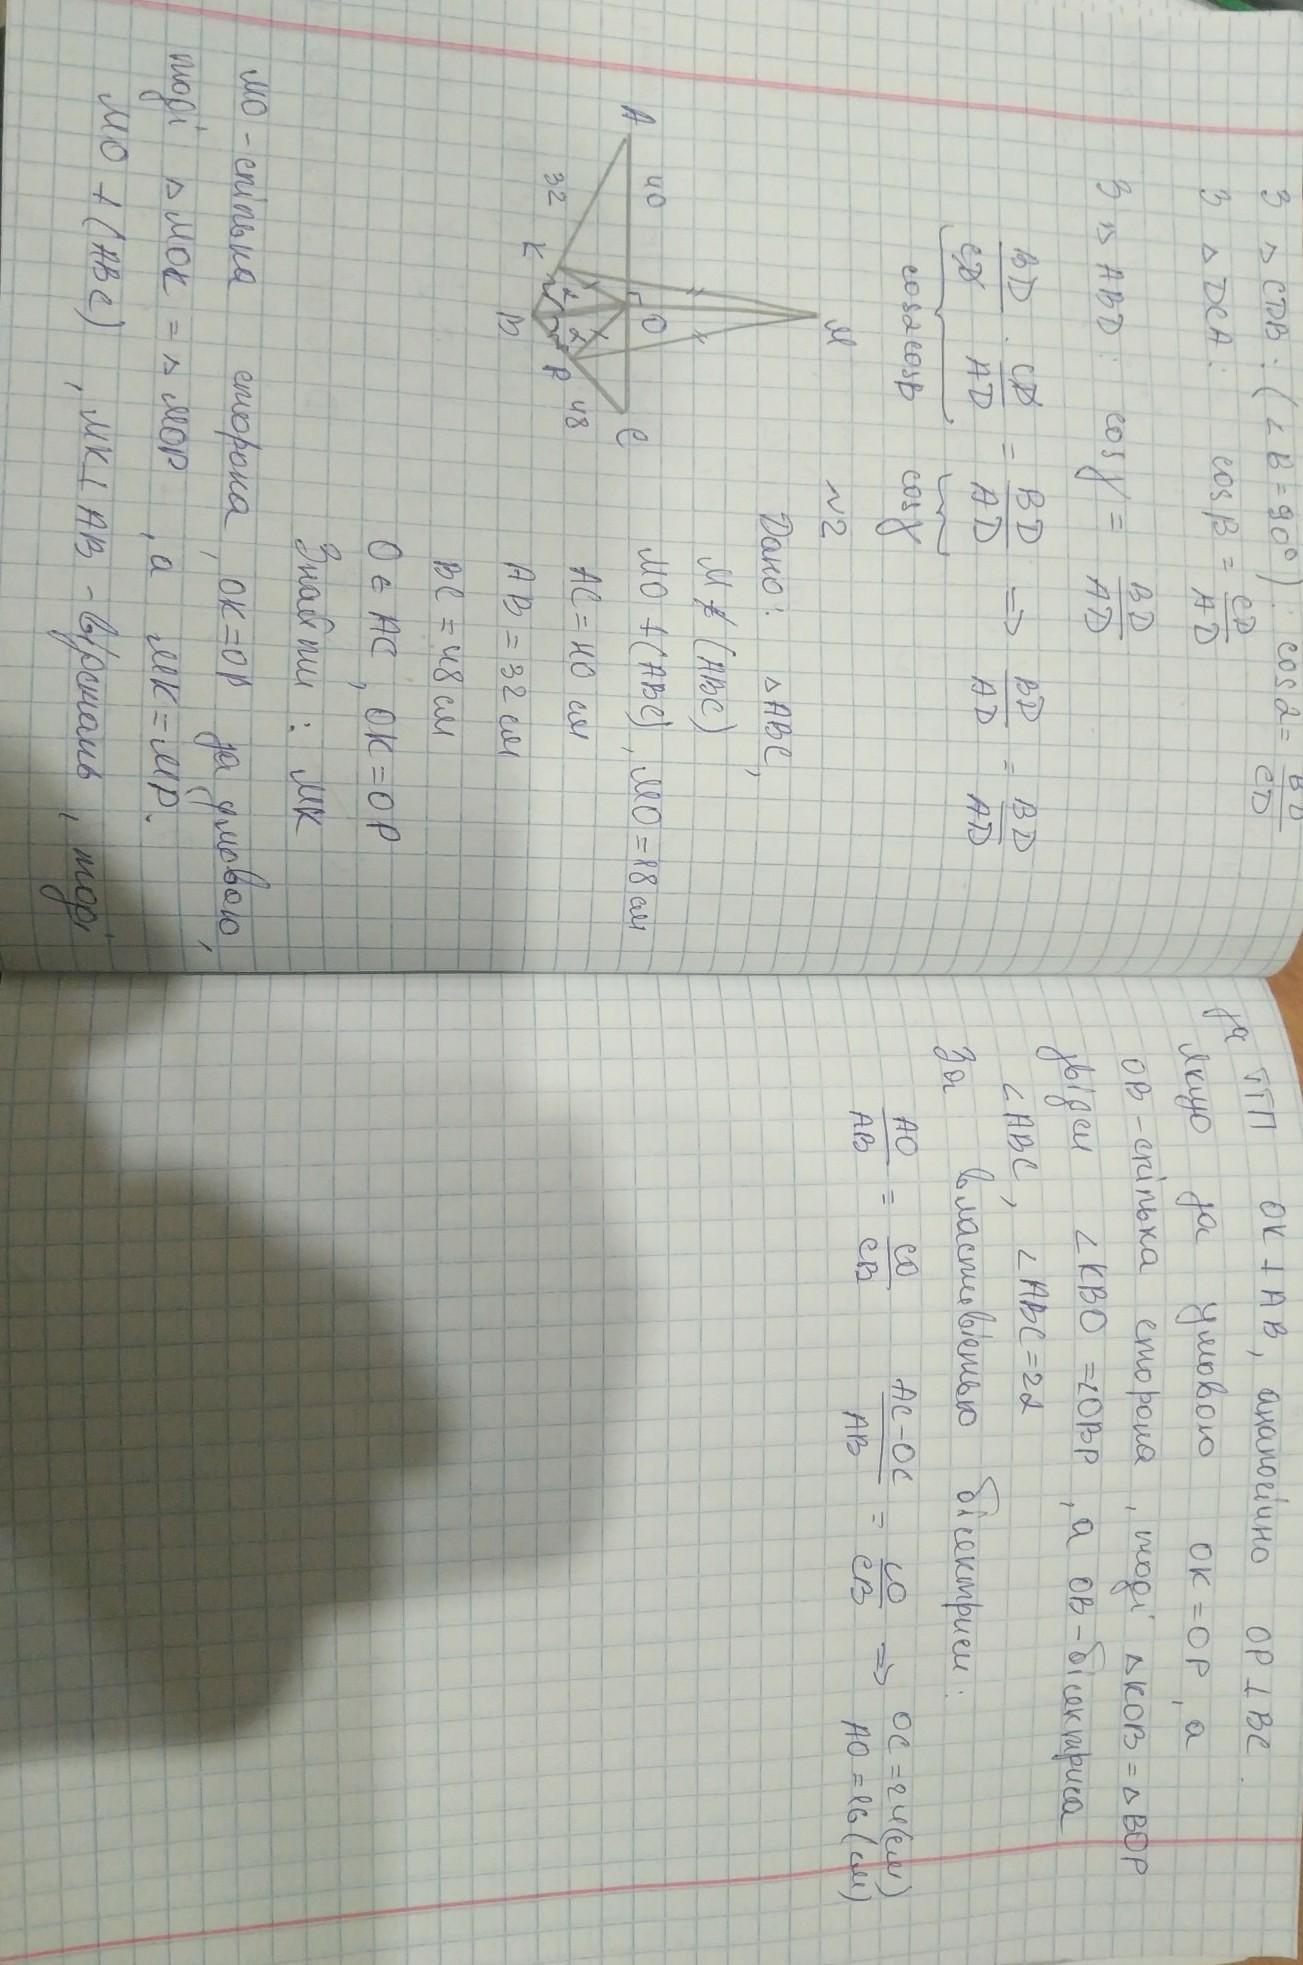 З △CDB: (∠B=90°): cosα = BD/CD
З △DCA: cosβ = CD/AD
З △ABD: cosγ = BD/AD
BD/CD · CD/AD = BD/AD ⇒ BD/AD = BD/AD
cosαcosβ cosγ
№2
M
A
40
O
C
32
K
B
P
48
α
α
Дано: △ABC,
M∉(ABC)
MO⊥(ABC), MO=18см
AC=40см
AB=32см
BC=48см
O∈AC, OK=OP
Знайти: MK
MO-спільна сторона, OK=OP за умовою,
тоді △MOK=△MOP, а MK=MP.
MO⊥(ABC), MK⊥AB - відстань, тоді
за ТТП OK⊥AB, аналогічно OP⊥BC.
Якщо за умовою OK=OP, а
OB-спільна сторона, тоді △KOB=△BOP
звідси ∠KBO=∠OBP, а OB-бісектриса
∠ABC, ∠ABC=2α
За властивістю бісектриси:
AO/AB = CO/CB AC-OC/AB = CO/CB ⇒ OC=24(см)
AO=16(см)